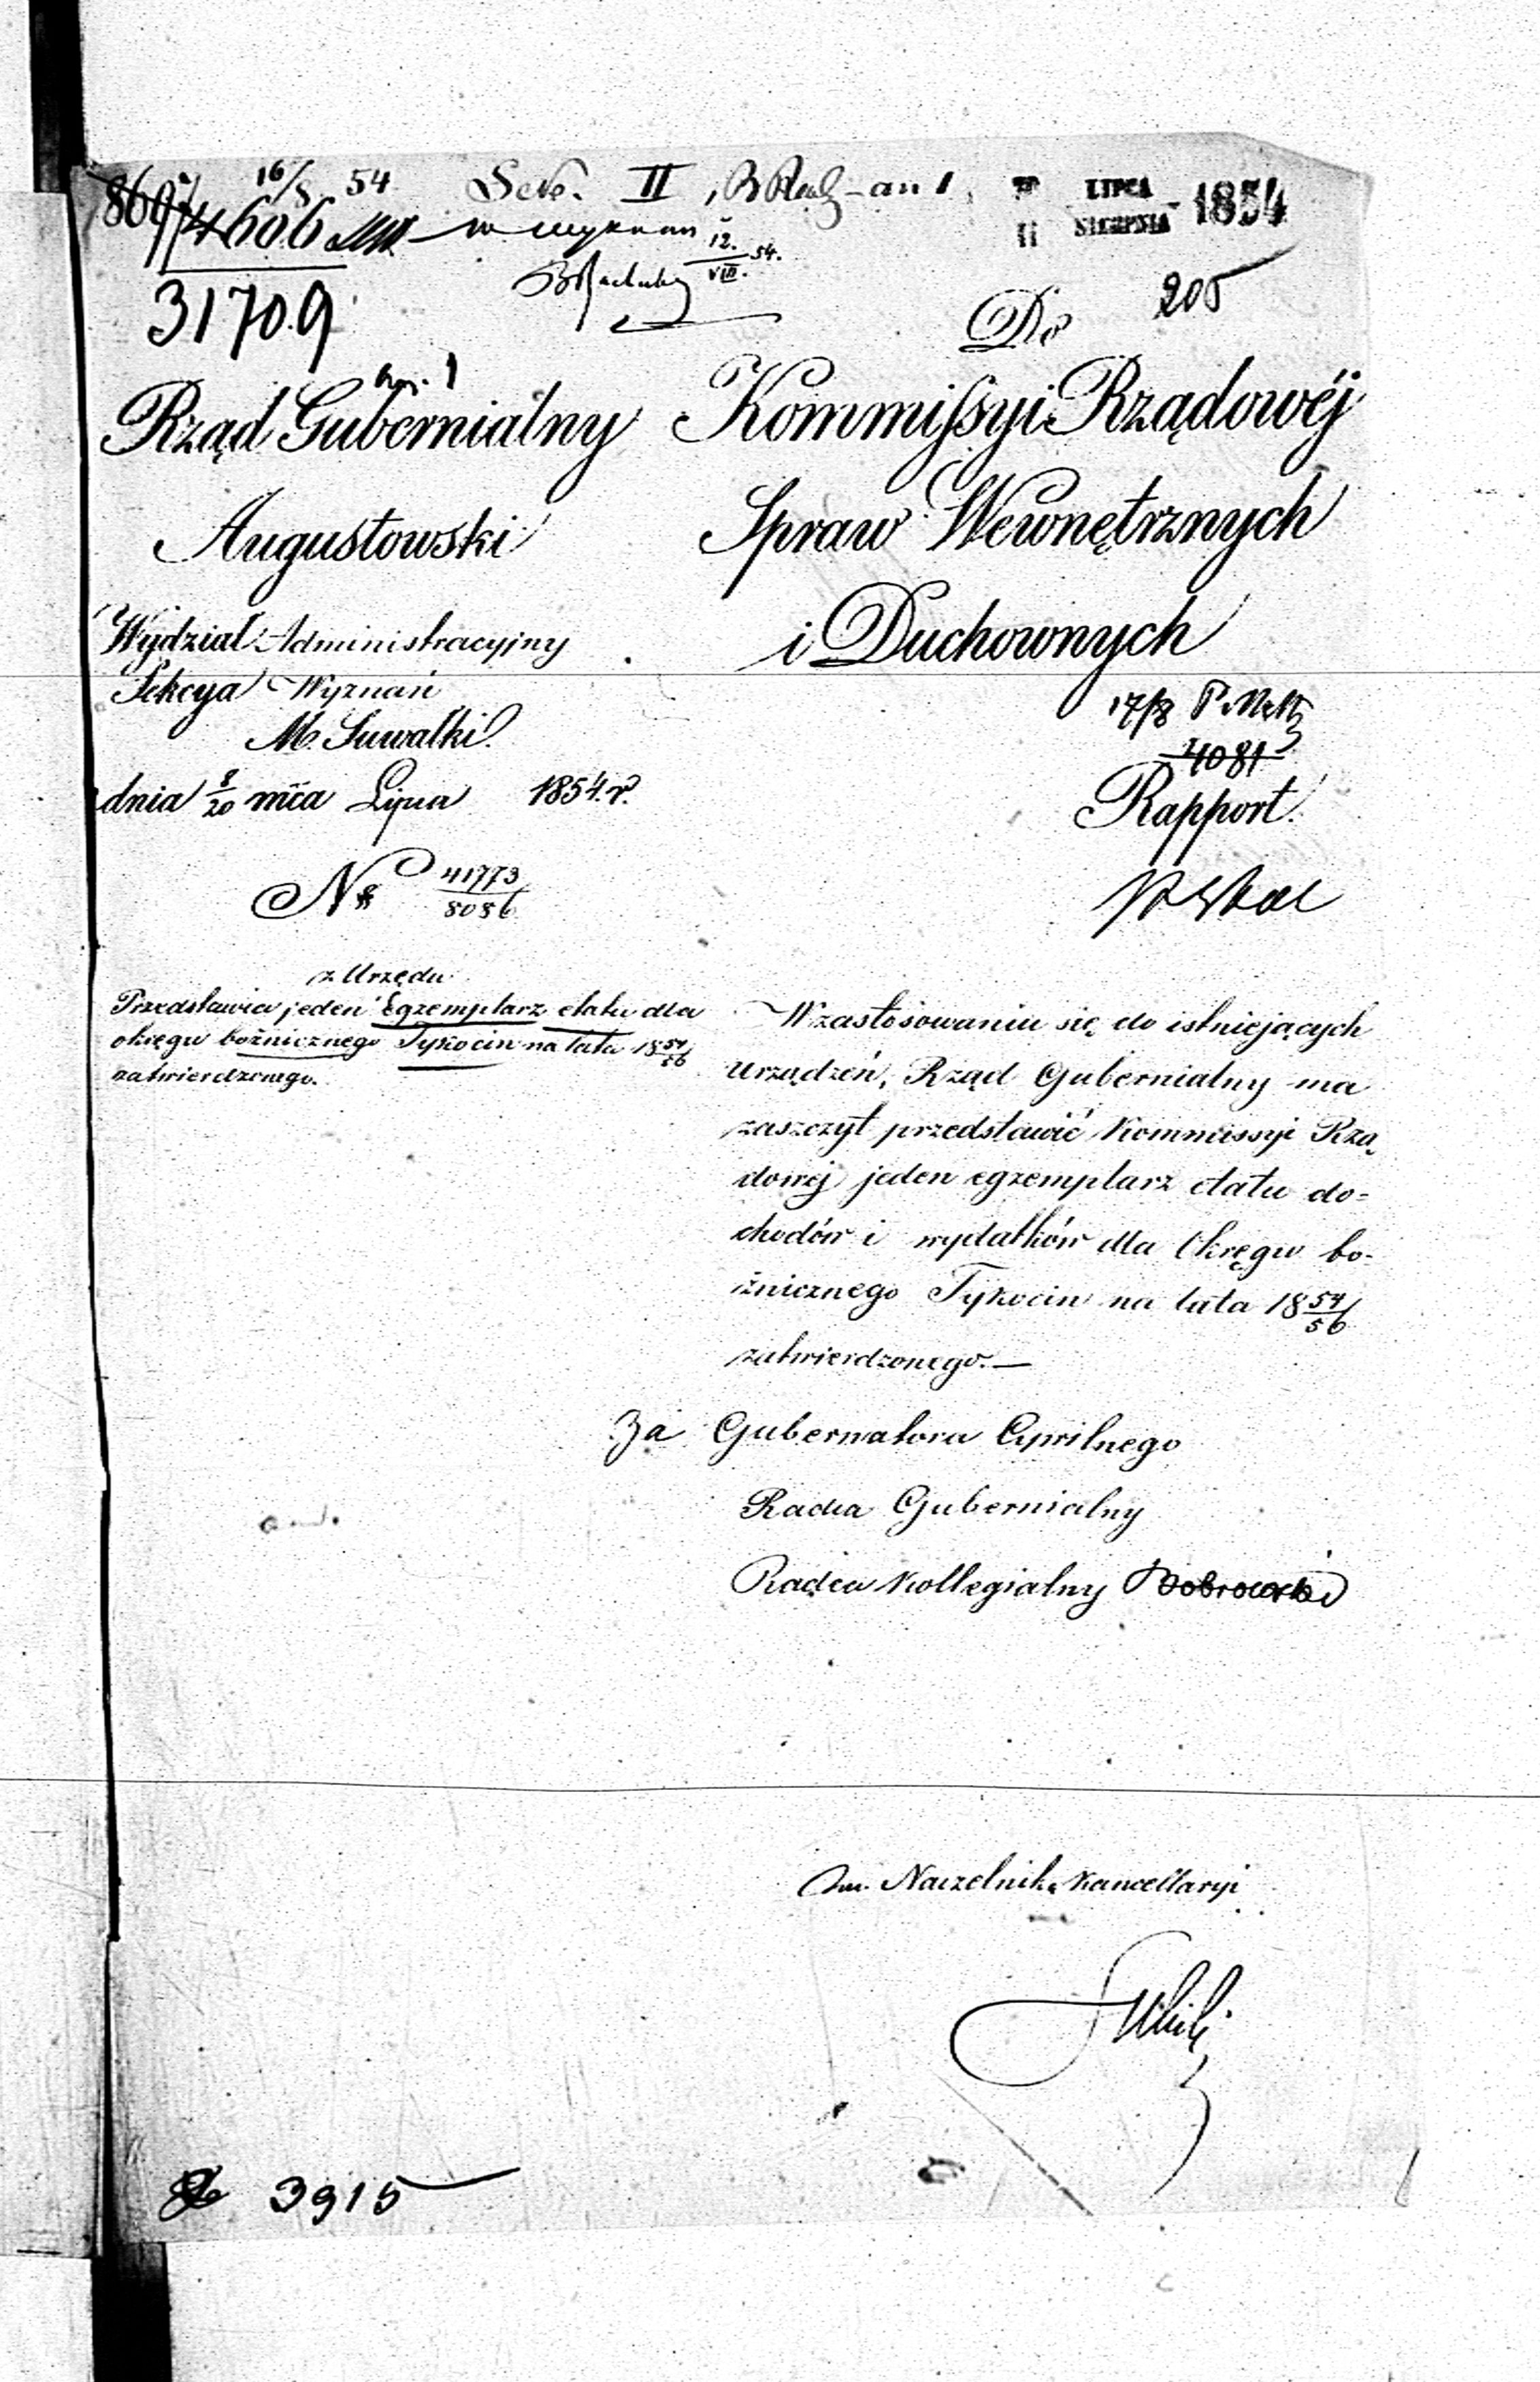 16/8 54
Sek. II
LIPCA
11 SIERPNIA 1854
14606
12.
VIII. 54.
31709
205
Do
Rząd Gubernialny
Augustowski
Wydział Administracyjny
Sekcya Wyznań
M. Suwałki.
dnia 8/20 mca Lipca 1854. r.
No 41773/8086
Kommissyi Rządowéj
Spraw Wewnętrznych
i Duchownych
17/8
4081
Rapport.
z Urzędu
Przedstawia jeden Egzemplarz etatu dla
okręgu bożnicznego Tykocin na lata 1854/56
zatwierdzonego.
W zastosowaniu się do istniejących
urządzeń, Rząd Gubernialny ma
zaszczyt przedstawić Kommissyi Rzą
dowéj jeden egzemplarz etatu do=
chodów i wydatków dla Okręgu bo-
żnicznego Tykocin na lata 1854/56
zatwierdzonego.—
Za Gubernatora Cywilnego
Radca Gubernialny
Radca Kollegialny Dobrowolski
Naczelnik Kancellaryi
3915